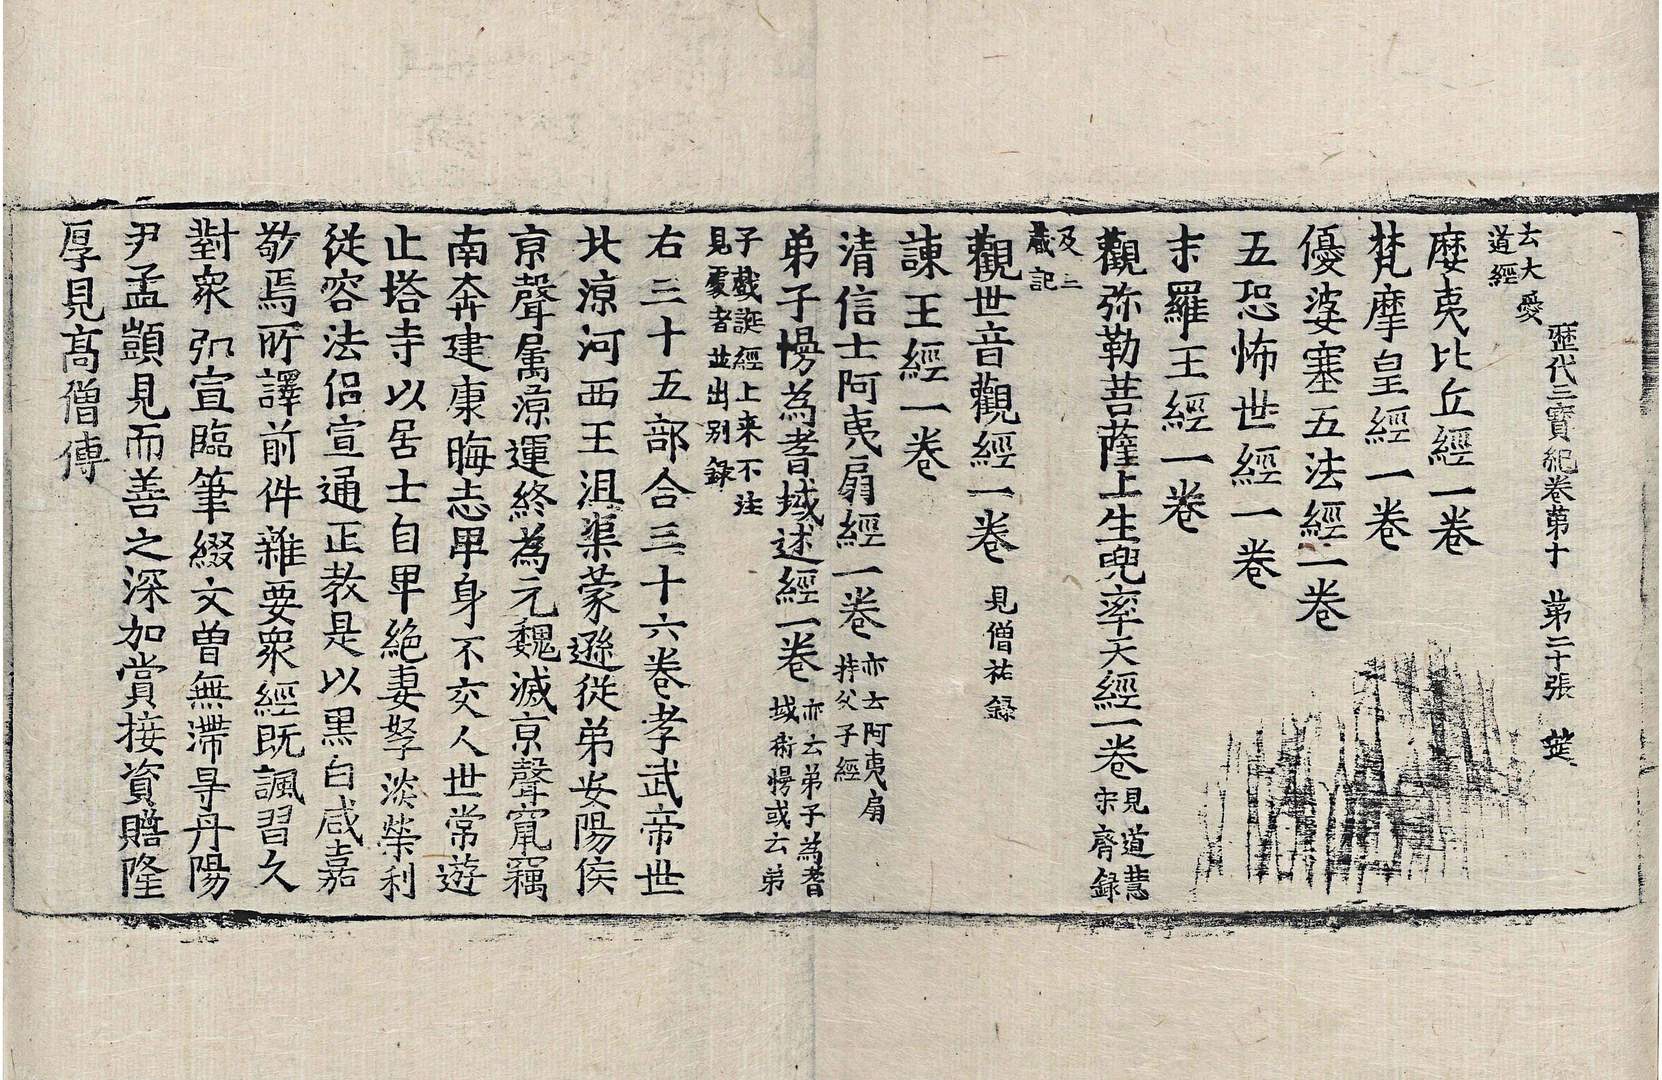 歷代三寶紀卷第十　第二十張
云大愛
道經
摩夷比丘經一卷
梵摩皇經一卷
優婆塞五法經一卷
五恐怖世經一卷
末羅王經一卷
觀弥勒菩薩上生兜率天經一卷 見道慧
宋齊錄
及三
藏記
觀世音觀經一卷 見僧祐錄
諫王經一卷
清信士阿夷扇經一卷 亦云阿夷扇
持父子經
弟子慢為耆域述經一卷 亦云弟子為耆
域術慢或云弟
子戲誕經上来不注
見處者並出別錄
右三十五部合三十六卷孝武帝世
北涼河西王沮渠蒙遜従弟安陽侯
京聲属涼運終為元魏滅京聲竄竊
南奔建康晦志卑身不交人世常遊
止塔寺以居士自卑絶妻孥淡榮利
従容法侣宣通正教是以黑白咸嘉
敬焉所譯前件雜要衆經既諷習久
對衆弘宣臨筆綴文曽無滯㝵丹陽
尹孟顗見而善之深加賞接資贈隆
厚見髙僧傳